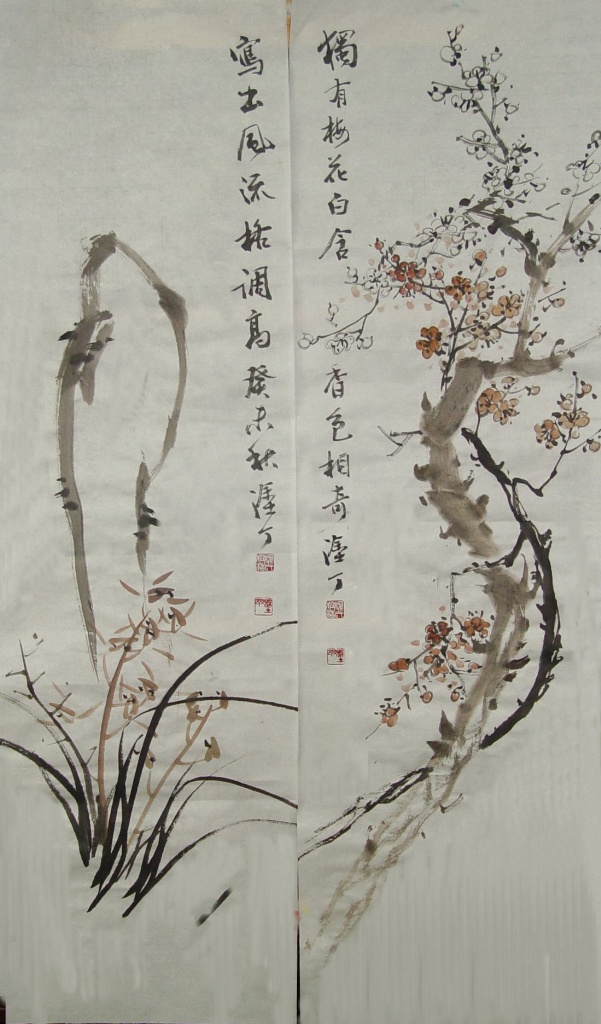 獨有梅花白含香色相奇 丁
寫出風流格调高 癸未秋 丁